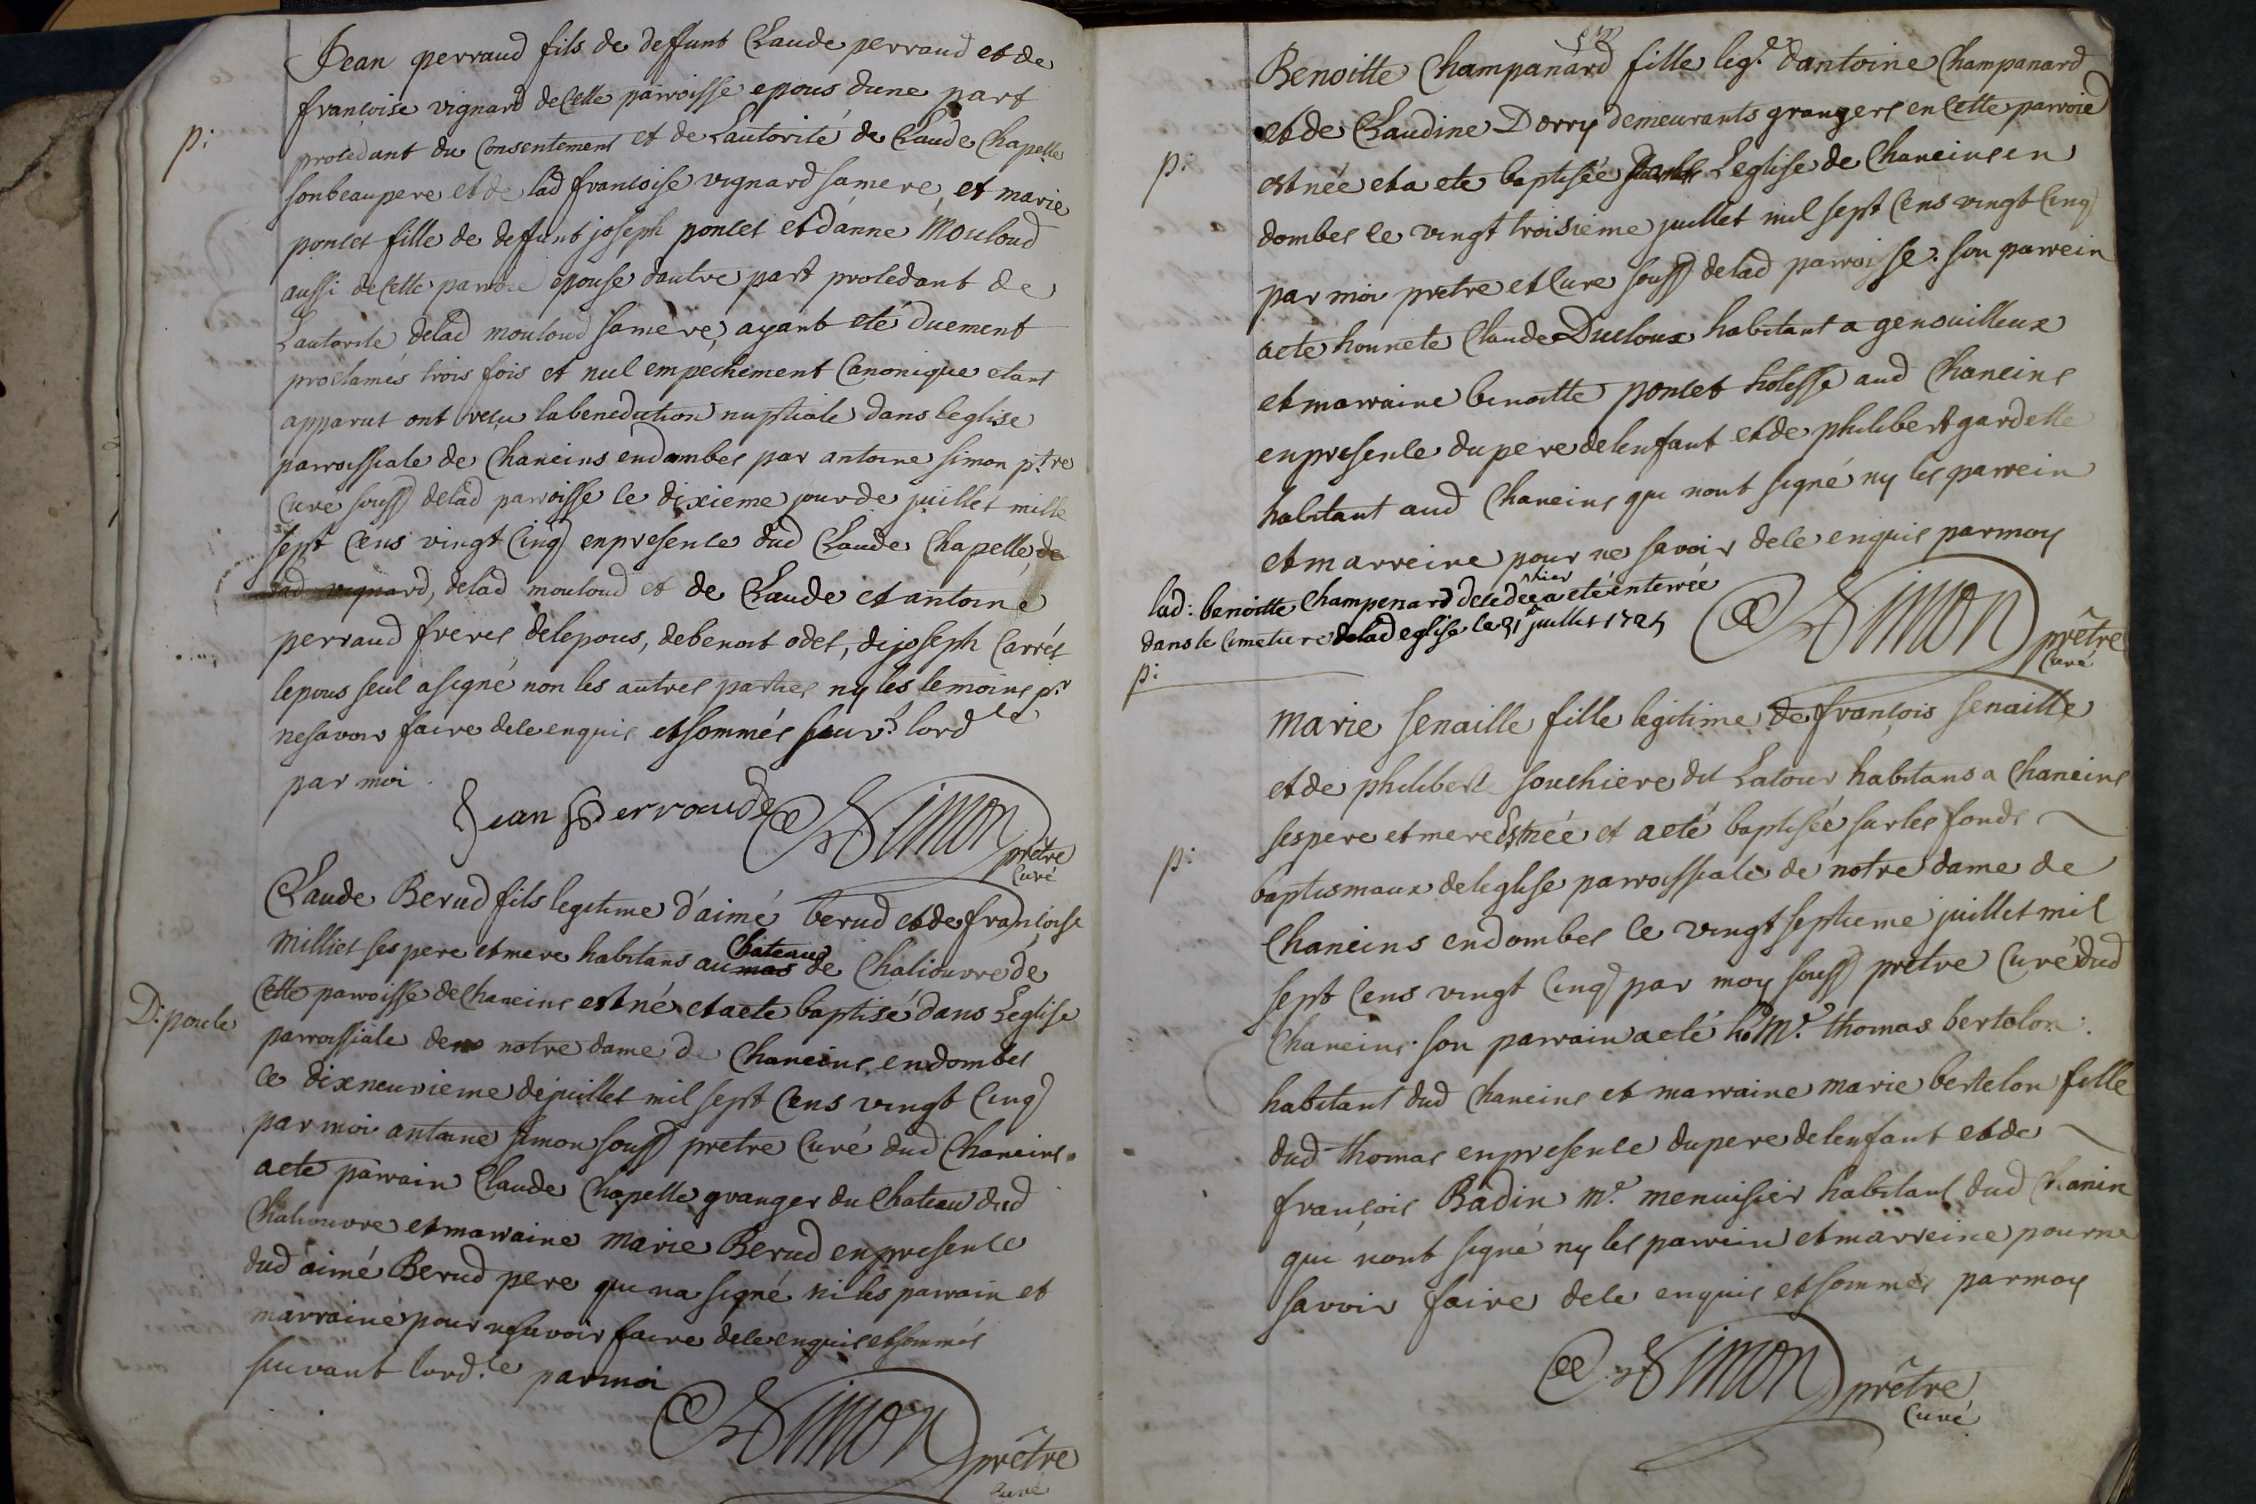 Jean perraud fils de deffunt Claude perraud et de
françoise vignard de Cette parroisse epous dune part
p:
procedant du Consentement et de Lautorité de Claude Chapelle
son beaupere et de lad françoise vignard sa mere, et marie
poncet fille de deffunt joseph poncet et d'anne Mouloud
aussi de Cette parroisse epouse dautre part procedant de
Lautorité de lad mouloud sa mere, ayant eté duement
proclamés trois fois et nul empechement Canonique etant
apparut ont reçu la benediction nuptiale dans leglise
parroissiale de Chaneins en dombes par antoine simon ptre
Curé souss de lad parroisse le dixieme jour de juillet mille
sept Cens vingt Cinq en presence dud Claude Chapelle, de
lad vignard, de lad mouloud et de Claude et antoine
perraud freres de lepous, de benoit odet, de joseph Carrés
lepous seul a signé non les autres parties ny les temoins pr
ne savoir faire de ce enquis et sommés suiv.t lord ce
par moi
Jean Perraud Simon prêtre
Curé
Claude Berud fils legitime d'aimé berud et de françoise
Milliet ses pere et mere habitans au mas Chateau de Chaliouvre de
Cette parroisse de Chaneins est né et a eté baptisé dans Leglise
D: poncle
parroissiale de notre dame de Chaneins en dombes
le dixneuvieme de juillet mil sept Cens vingt Cinq
par moi antoine simon souss pretre Curé dud Chaneins.
a eté parrain Claude Chapelle granger du Chateau dud
Chaliouvre et marraine Marie Berud en presence
dud aimé Berud pere qui na signé ni les parrain et
marraine pour ne savoir faire de ce enquis et sommés
suivant lord.ce par moi
Simon prêtre
Curé
Benoitte Champanard fille leg.e dantoine Champanard
et de Claudine Dorry demeurants grangers en Cette parroie
p:
est née et a ete baptisée Leglise de Chaneins en
dombes le vingt troisieme juillet mil sept Cens vingt Cinq
par moi pretre et Curé souss de lad parroisse. son parrein
a ete honnete Claude Ducloux habitant a genouilleux
et marraine benoitte poncet hotesse aud Chaneins
en presence du pere de lenfant et de philibert gardette
habitant aud Chaneins qui nont signé ny les parrein
et marreine pour ne savoir de ce enquis par moy
lad: benoitte Champenard decedée hier a eté enterrée
dans le Cimetiere de lad eglise le 31 juillet 1725
Simon prêtre
Curé
p:
Marie senaille fille legitime de françois senaille
et de philiberte souchiere dit Latour habitans a Chaneins
ses pere et mere Est née et a eté baptisée sur les fonds
p:
baptismaux de leglise parroissiale de notre dame de
Chaneins en dombes le vingt septieme juillet mil
sept Cens vingt Cinq par moy souss pretre Curé dud
Chaneins. son parrain a eté ho M.e thomas bertelon
habitant dud Chaneins et marraine marie bertelon fille
dud thomas en presence du pere de lenfant et de
françois Badin m.e menuisier habitant dud Chanein
qui nont signé ny les parrein et marreine pour ne
savoir faire de ce enquis et sommés par moy
Simon prêtre
Curé